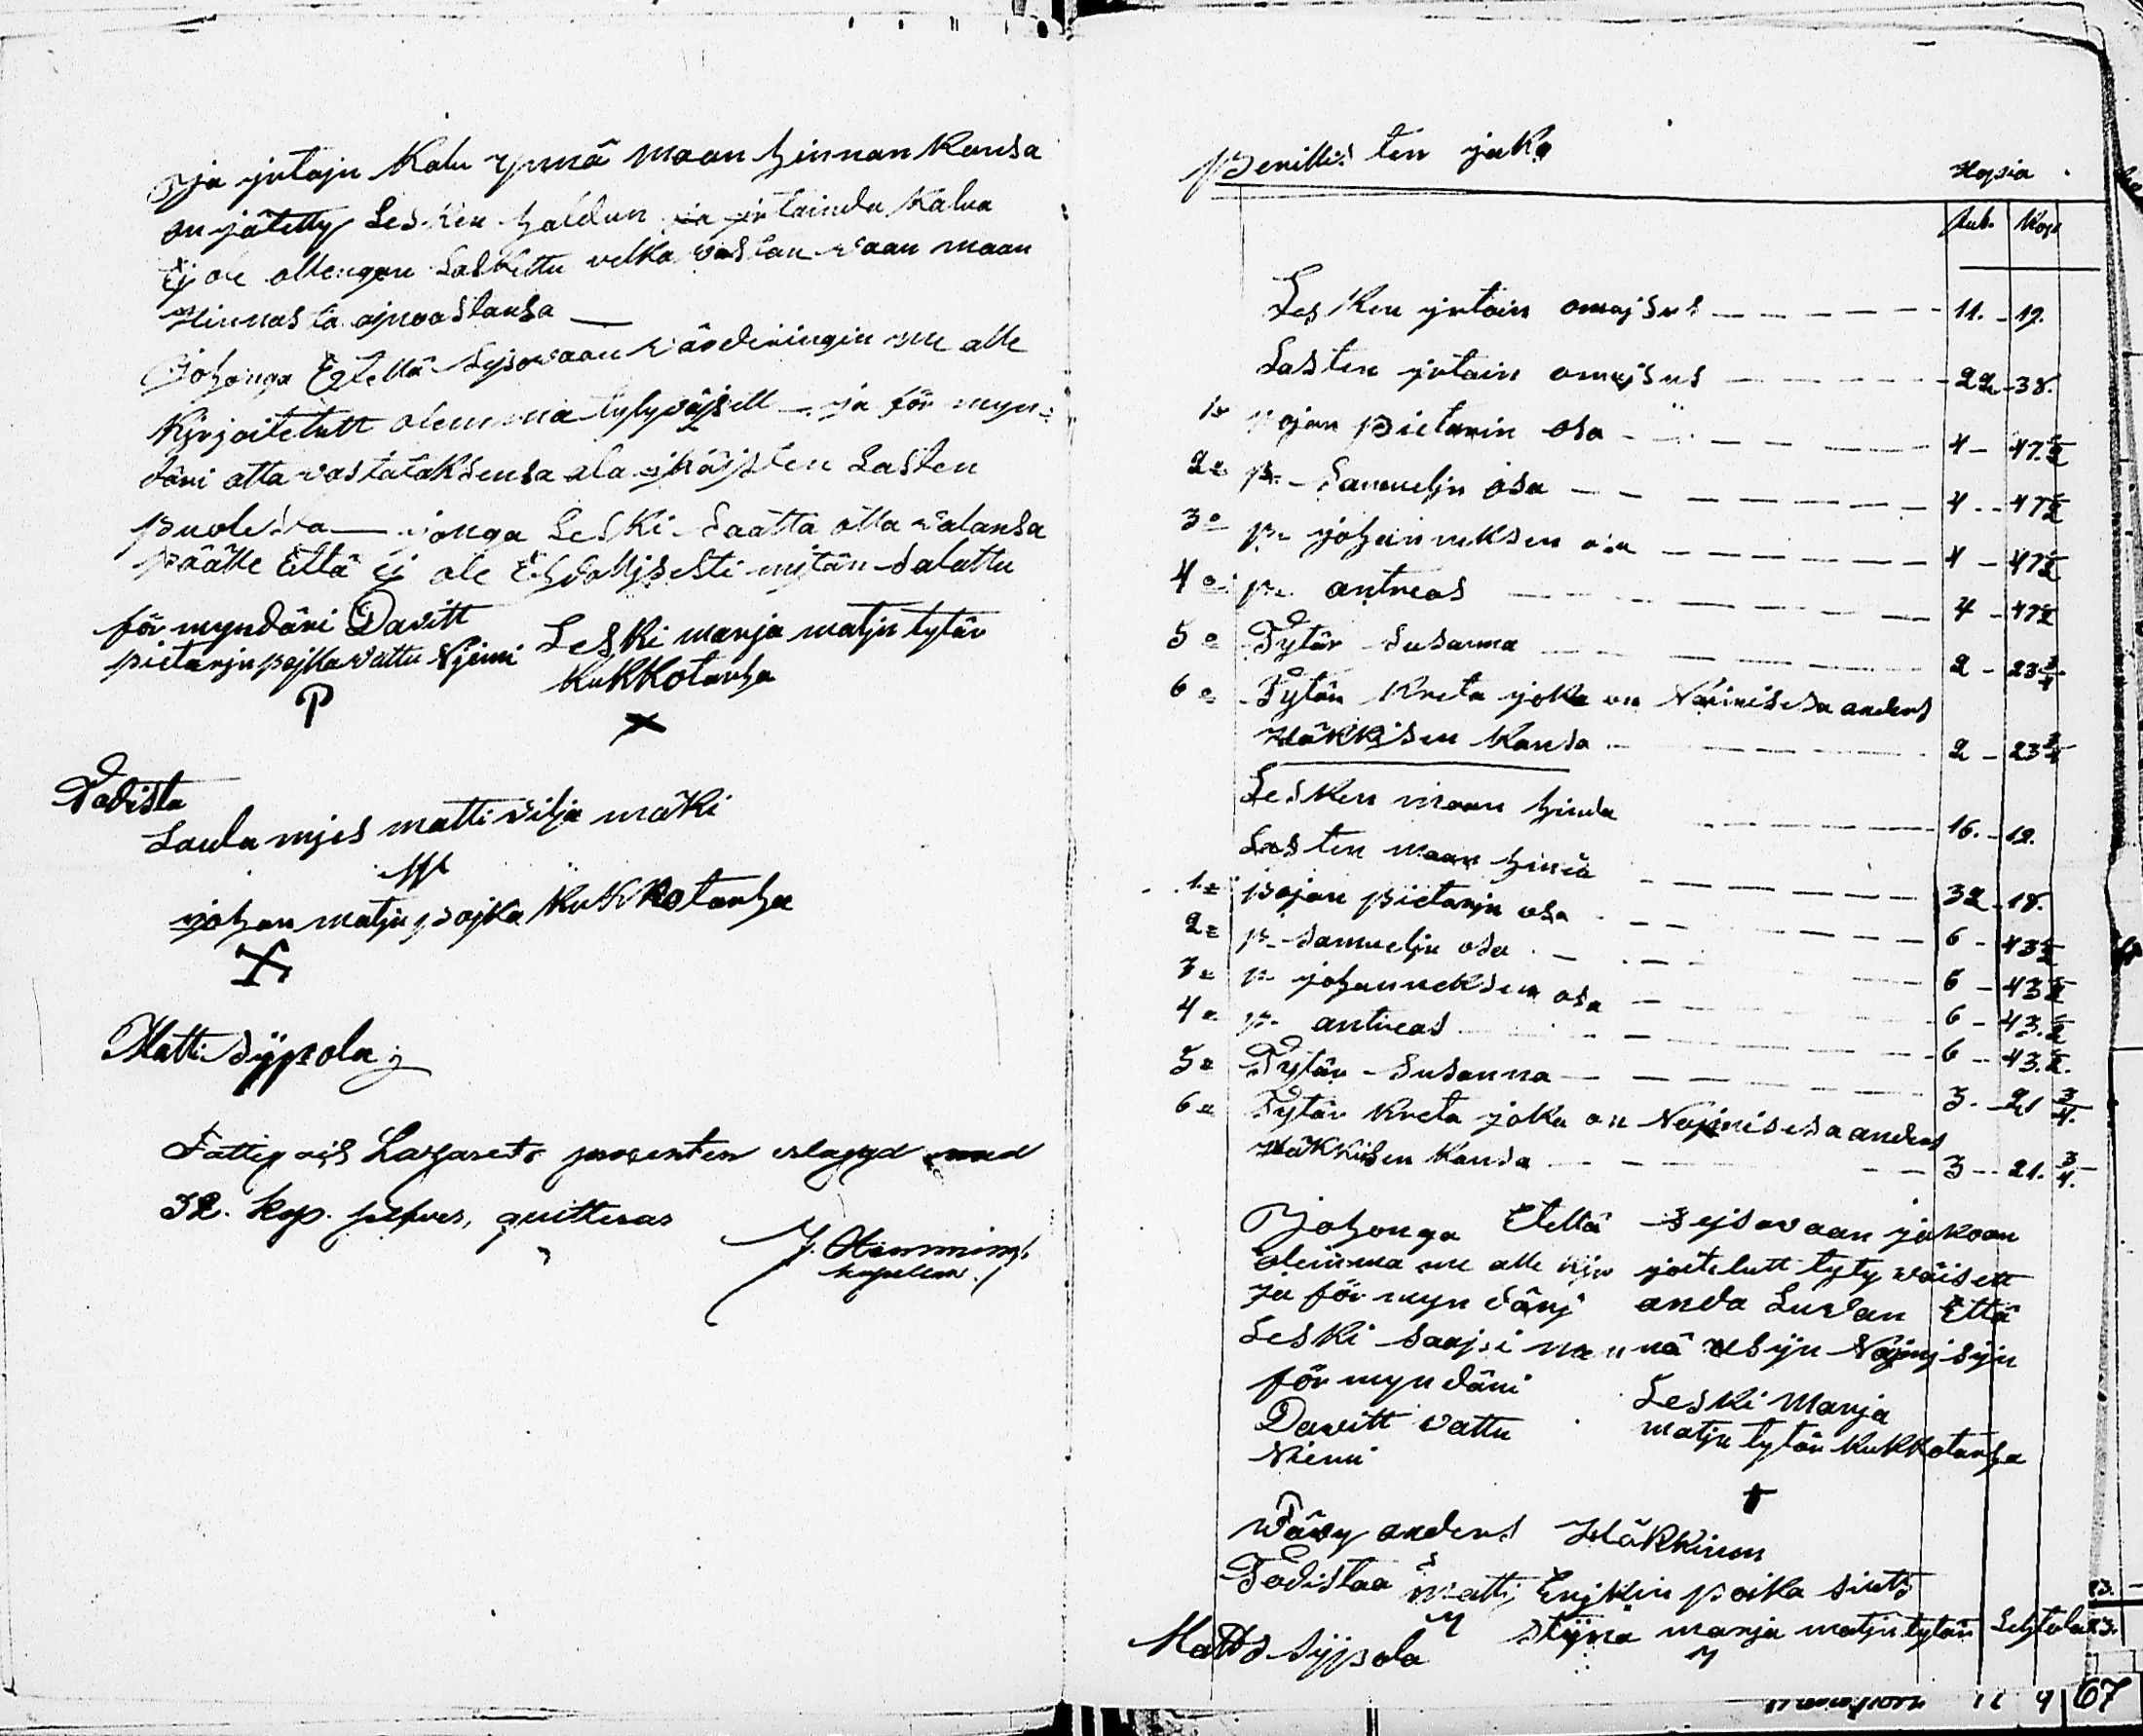 ja jrtajn Kalu ynnä maan hinnan Kansa
on jätetty Lesken haldun ja jrtainda Kalua
Ej ole ollengan Laskettu velka vastan vaan maan
Hinnasta ajnoastansa —
Johonga Etellä Sejsovaan värderingin me alle
Kirjoitetutt olemma tytyväjsett — ja förmyn=
däri otta vastataksensa ala jkäjsten Lasten
puolesta — jonga Leski Saatta otta valansa
päälle Että Ej ole Ehdollisesti mitän salattu
förmyndäri Davitt
pietarjn pojka vattu Njemi
P
Leski marja matjn tytär
Kukkotanha
X
Todista
Lauta mjes matti vilja mäki
M
johan matjn pojka Kukkotanha
X
Matti Sÿpola
Fattig och Lazaretts procenten erlagd med
32. kop. silfver, quitteras
J. Hemming
kapellan.
Perillisten jako
Hopia
Rub. Kop
Lesken jrtain omajsus — 11. - 19.
Lasten jrtain omajsus — 22 - 38.
1e pojan pietarin osa — 4 - 47.½
2e p. Samueljn osa — 4 - 47½
3e p. johanneksen osa — 4 - 47½
4e p. antreas — 4 - 47½
5e Tytär Susanna — 2 - 23¾
6e Tytär Kreta joka on Najmisesa anders
Häkkisen Kansa — 2 - 23¾
Lesken maan hinda — 16. - 19.
Lasten maan hinda — 32 - 18.
1e pojan pietarjn osa — 6 - 43½
2e p. samueljn osa — 6 - 43½
3e p. johanneksen osa — 6 - 43.½
4e p. antreas — 6 - 43.½.
5e Tytär Susanna — 3. - 21 ¾.
6e Tytär Kreta joka on Najmisesa anders
Häkkisen Kansa — 3 - 21. ¾.
Johonga Etellä sejsovaan jakoon
olemma me alle kirjoitetutt tytyväisett
ja förmyndärj anda Luvan Että
Leski saapi mennä usijn Najmisijn
förmyndäri
Davitt vattu
Niemi
Leski Marja
matjn tytär Kukkotanha
+
Vävy anders Häkkinen
Todistaa matti Erjkin poika
M
Matts Sÿpola
stjna marja matjn tytär Lehtola
M
67